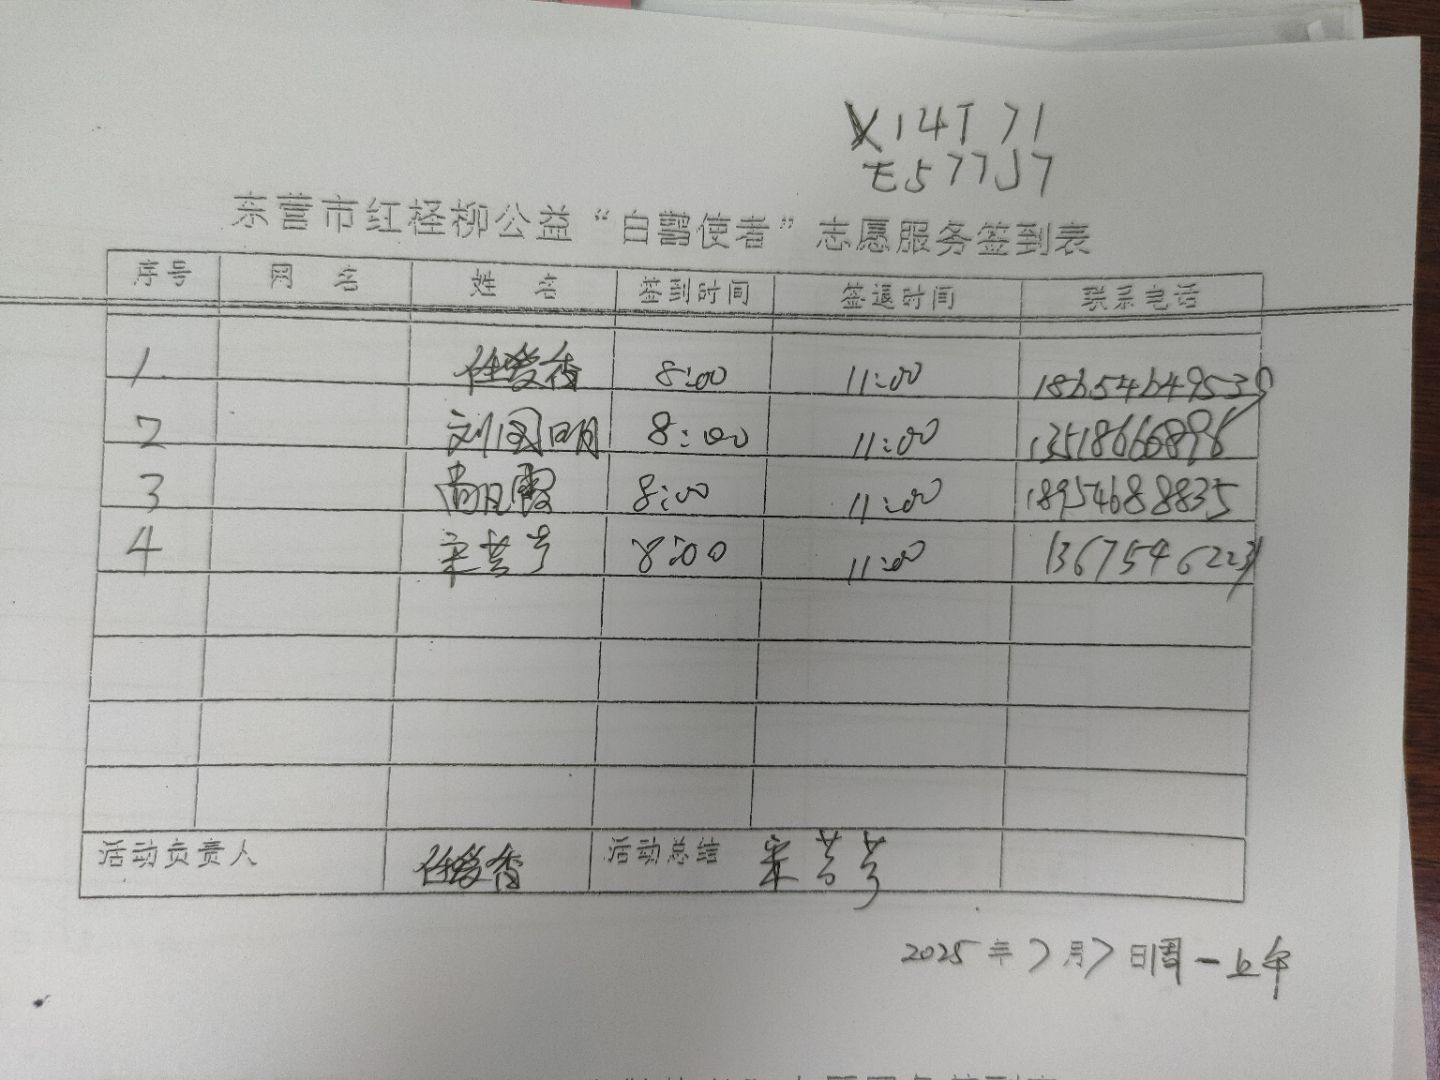 X14T71
E577J7
东营市红柽柳公益“白鹭使者”志愿服务签到表
序号 网 名 姓 名 签到时间 签退时间 联系电话
1 任爱香 8:00 11:00 18654649539
2 刘国明 8:00 11:00 13518666896
3 尚见霞 8:00 11:00 18954688835
4 宋芸芳 8:00 11:00 13675462231
活动负责人 任爱香 活动总结 宋芸芳
2025年7月7日周一上午